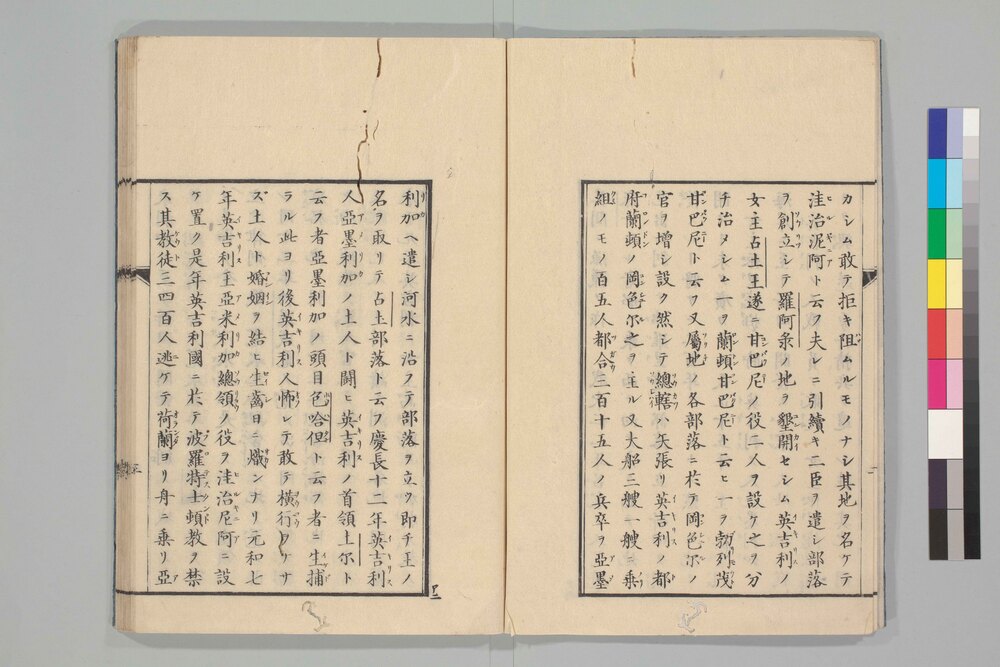 カシム敢テ拒キ阻ムルモノナシ其地ヲ名ケテ
洼治泥阿ト云フ夫レニ引續キ二臣ヲ遣シ部落
ヲ創立シテ羅阿彔ノ地ヲ墾開セシム英吉利ノ
女主占士王遂ニ甘巴尼ノ役二人ヲ設ケ之ヲ分
チ治メシム一ヲ蘭頓甘巴尼ト云ヒ一ヲ勃列茂
甘巴尼ト云フ又屬地ノ各部落ニ於テ岡色尔ノ
官ヲ增シ設ク然シテ總轄ハ矢張リ英吉利ノ都
府蘭頓ノ岡色尔之ヲ主ル又大船三艘一艘ニ乗
組ノモノ百五人都合三百十五人ノ兵卒ヲ亞墨
利加ヘ遣シ河水ニ沿フテ部落ヲ立ク即チ王ノ
名ヲ取リテ占土部落ト云フ慶長十二年英吉利
人亞墨利加ノ土人ト鬪ヒ英吉利ノ首領土尔ト
云フ者亞墨利加ノ頭目色哈但ト云フ者ニ生捕
ラル此ヨリ後英吉利人怖レテ敢テ横行ワケナ
ズ土人ト婚姻ヲ結ヒ生齒日ニ熾ンナリ元和七
年英吉利王亞米利加總領ノ役ヲ洼治尼阿ニ設
ケ置ク是年英吉利國ニ於テ波羅特士頓教ヲ禁
ス其教徒三四百人逃ケテ荷蘭ヨリ舟ニ乗リ亞